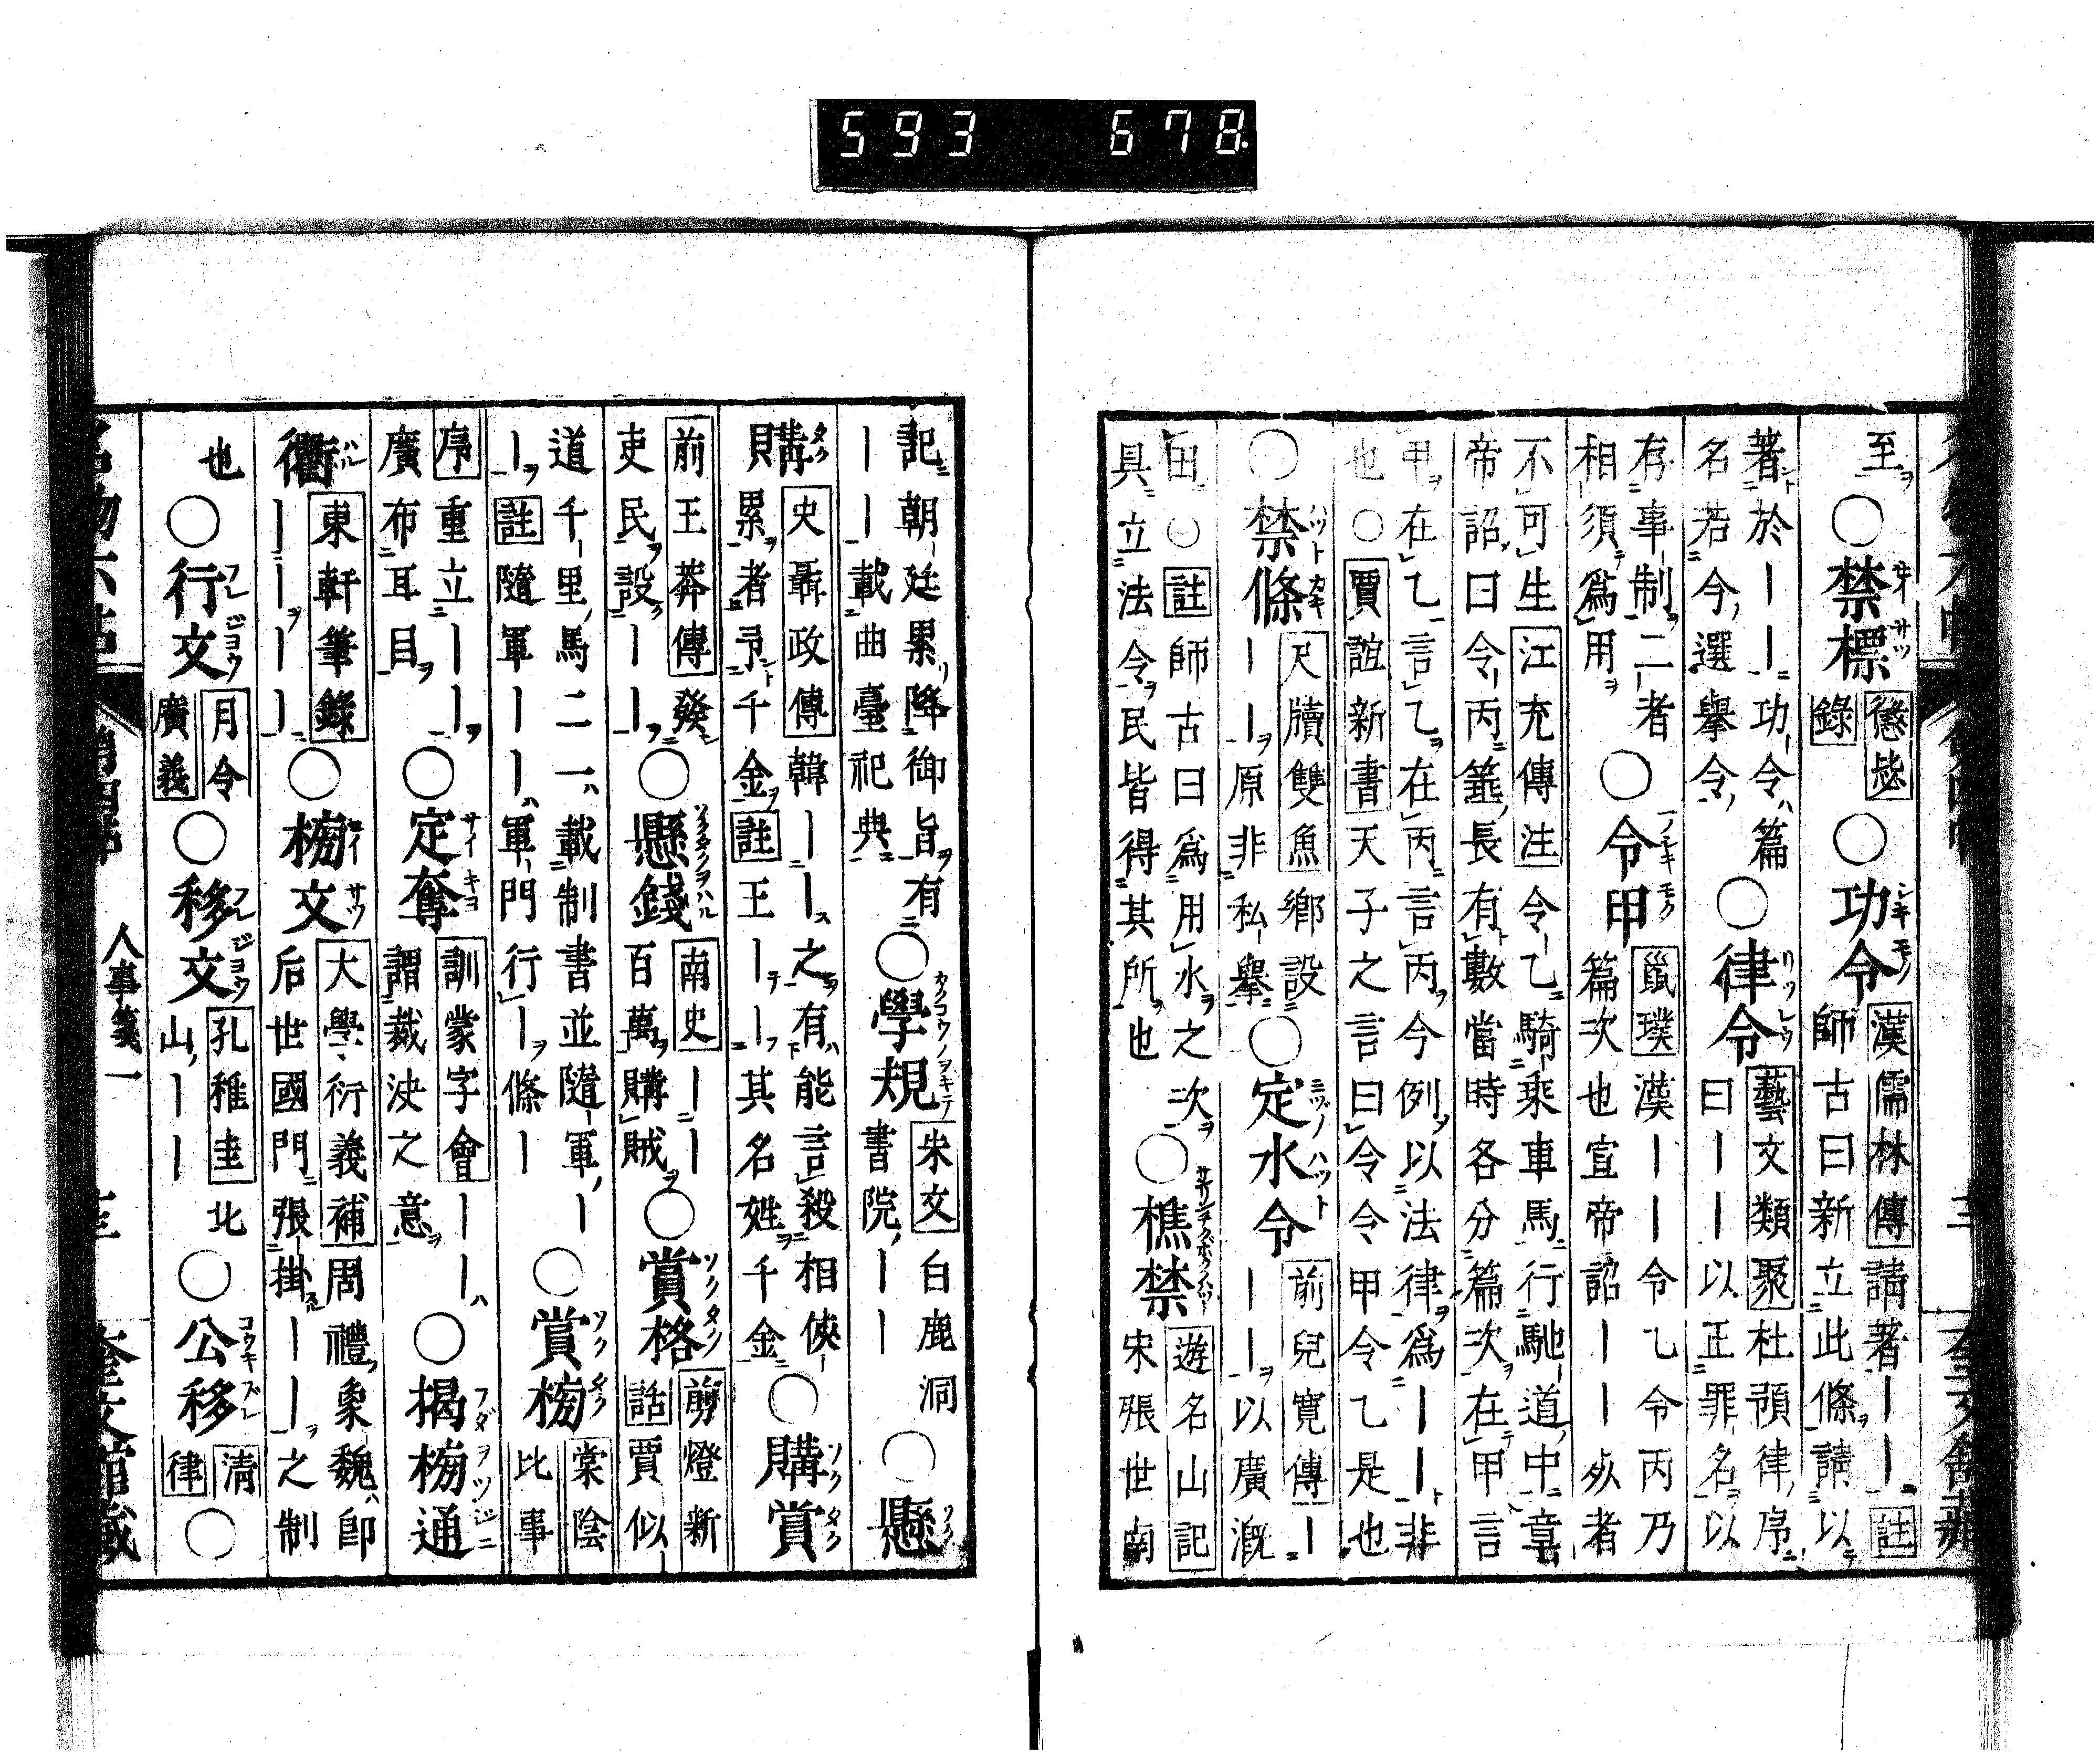 至○禁標懲毖錄○功令漢儒林傳請著〡〡註師古曰新立此條請以
著於〡〡功令篇名若今選舉令○律令藝文類聚杜預律序曰〡〡以正罪名以
存事制二者相須爲用○令甲甌璞漢〡〡令乙令丙乃篇次也宣帝詔〡〡死者
不可生江充傳注令乙騎乘車馬行馳道中章帝詔曰令丙箠長有數當時各分篇次在甲言
甲在乙言乙在丙言丙今例以法律爲〡〡非也○賈誼新書天子之言曰令令甲令乙是也
○禁條尺牘雙魚鄉設〡〡原非私舉○定水令前兒寬傳〡〡〡以廣漑
田○註師古曰爲用水之次具立法令民皆得其所也○樵禁遊名山記宋張世南
三
記朝廷累降御旨有〡〡載曲臺祀典○學規朱文白鹿洞書院〡〡○懸
購史聶政傳韓〡〡之有能言殺相俠累者予千金註王〡〡其名姓千金○購賞
前王莽傳發吏民設〡〡○懸錢南史〡〡百萬購賊○賞格剪燈新話賈似
道千里馬二一載制書並隨軍〡〡註隨軍〡〡軍門行〡條〡○賞榜棠陰比事
序重立〡〡廣布耳目○定奪訓蒙字會〡〡謂裁决之意○揭榜通
衢東軒筆錄〡〡〡〡○榜文大學衍義補周禮象魏卽后世國門張掛〡〡之制
也○行文月令廣義○移文孔稚圭北山〡〡○公移清律○
人事箋一
593 678